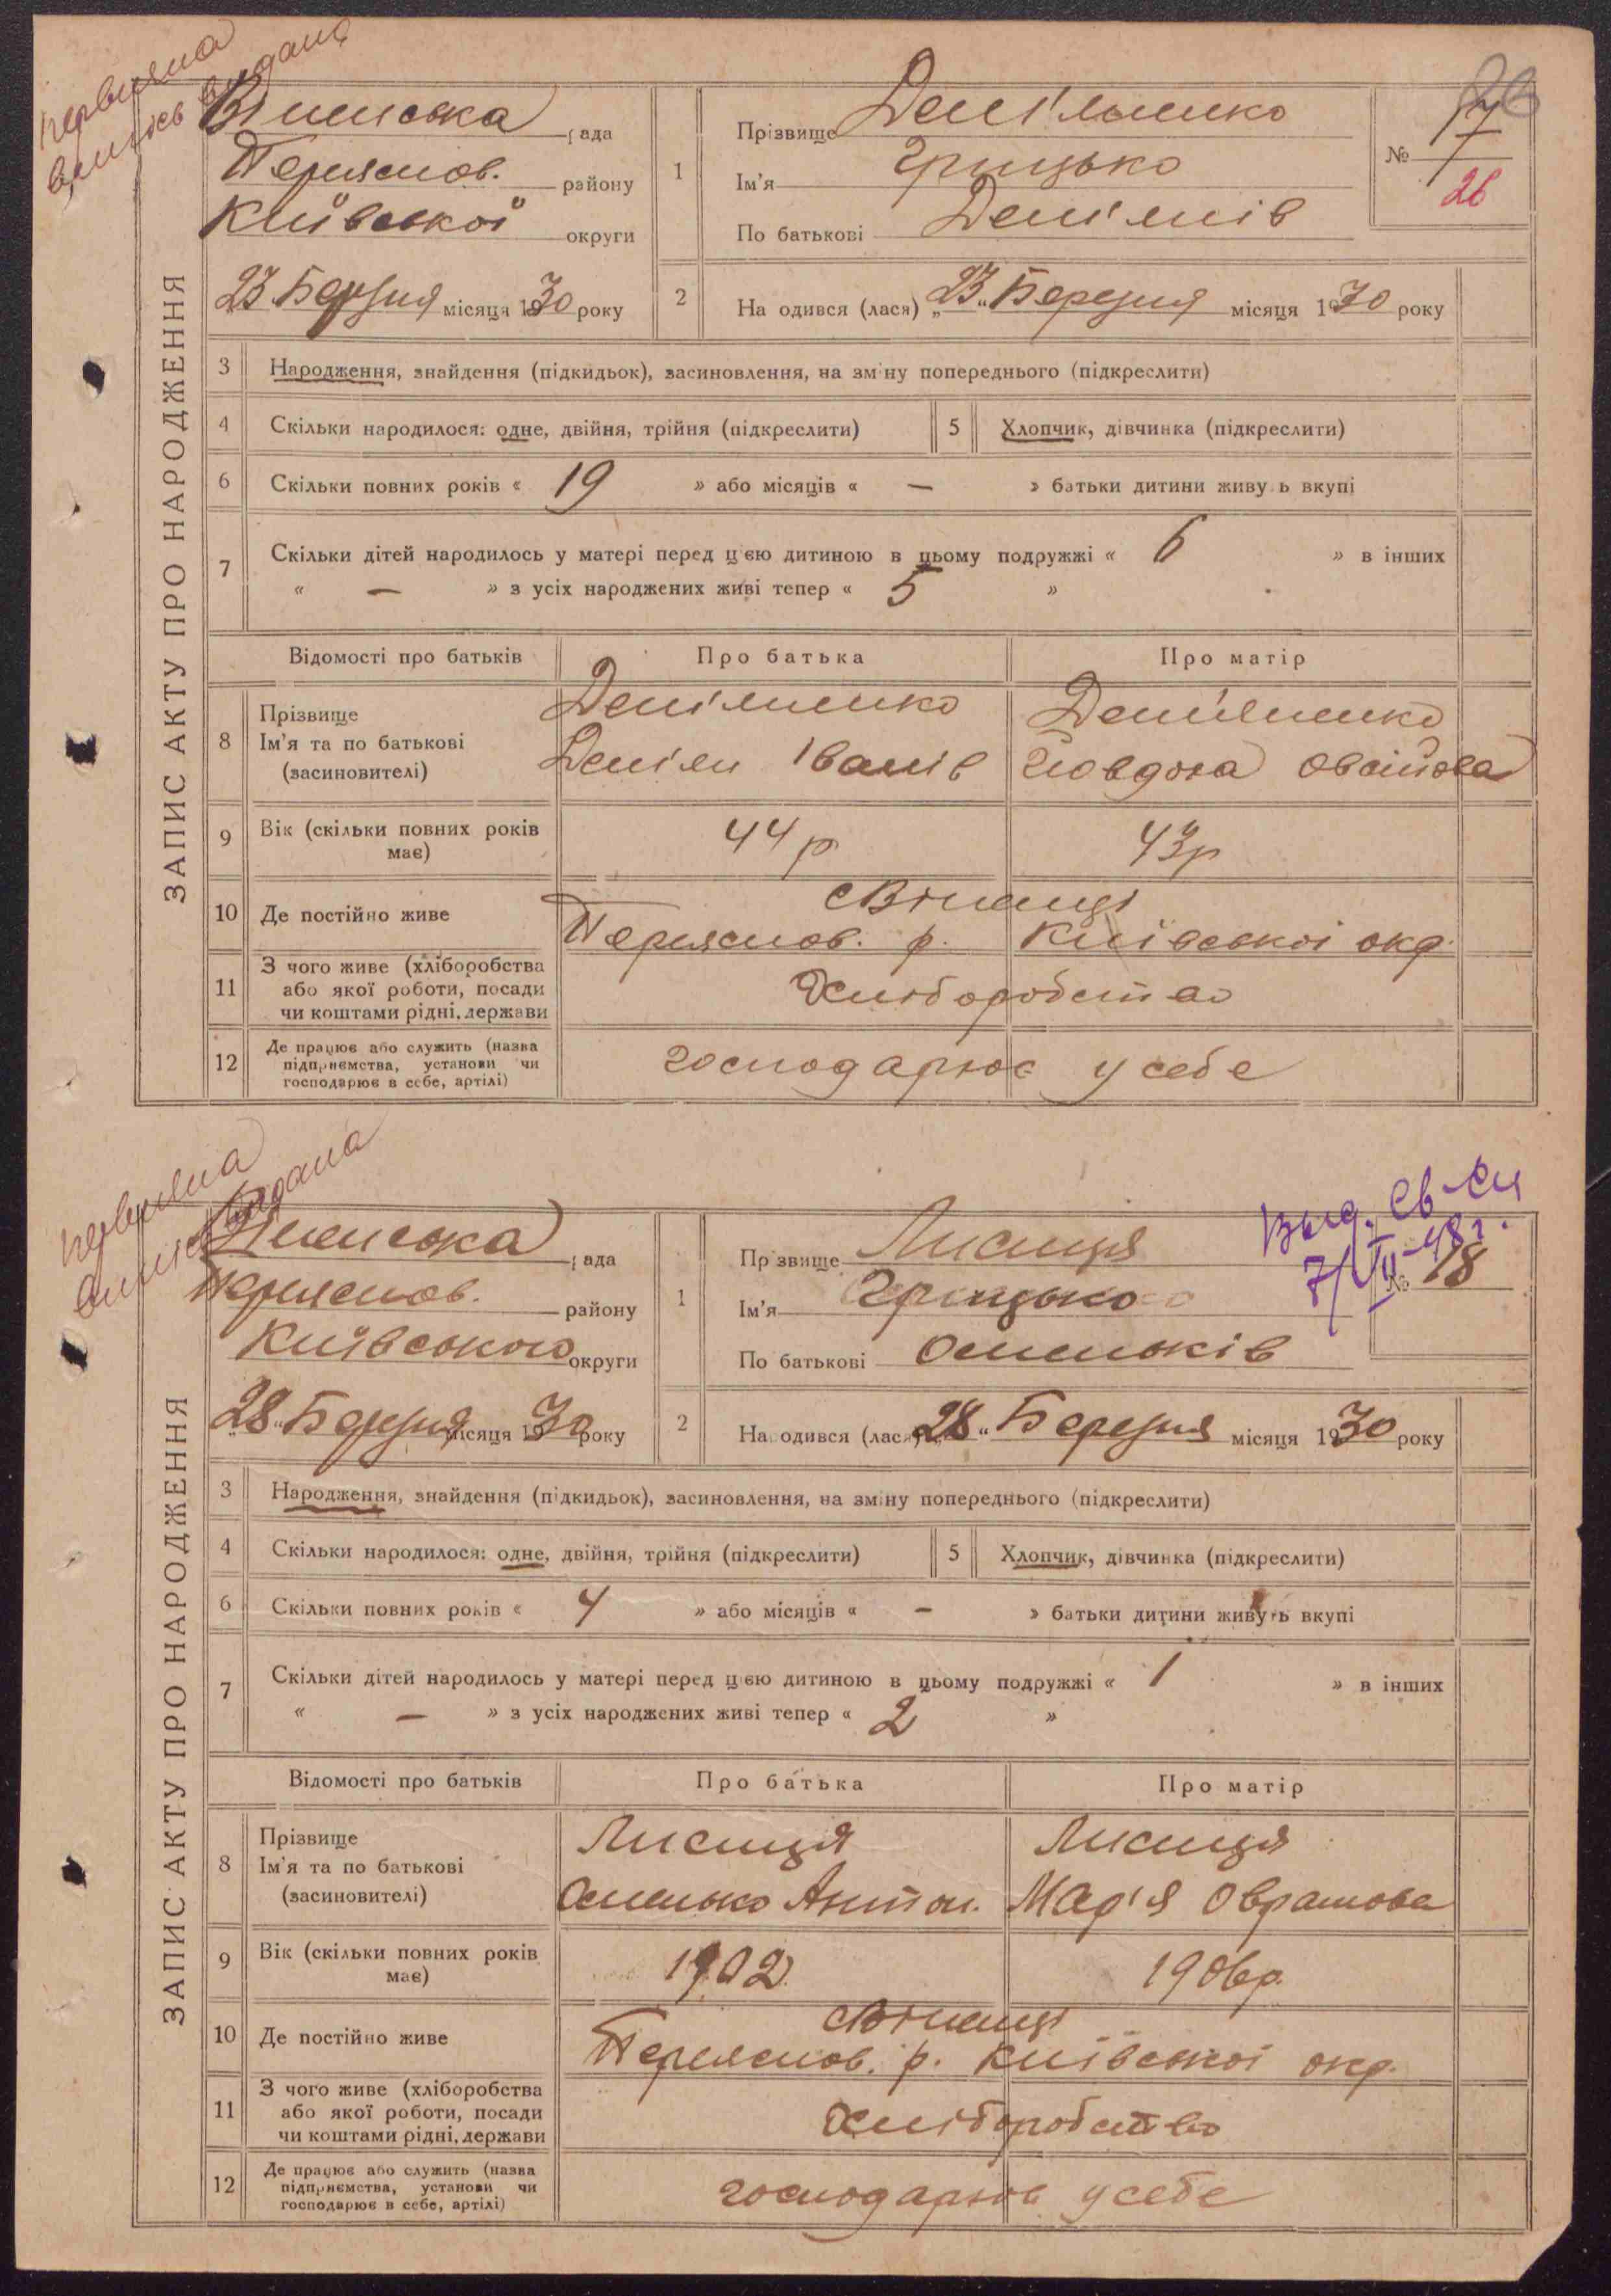 первизна
виписъ видана
Віненська рада
Переяслов. району
Київської округи
23 Березня місяця 1930 року
1 Прізвище Демʼяненко
Імʼя Грицько
По батькові Демʼянів
№ 17
26
2 На одився (лася) „23“ Березня місяця 1930 року
ЗАПИС АКТУ ПРО НАРОДЖЕННЯ
3 Народження, знайдення (підкидьок), засиновлення, на зміну попереднього (підкреслити)
4 Скільки народилося: одне, двійня, трійня (підкреслити) 5 Хлопчик, дівчинка (підкреслити)
6 Скільки повних років « 19 » або місяців « — » батьки дитини живуть вкупі
7 Скільки дітей народилось у матері перед цією дитиною в цьому подружжі « 6 » в інших
« — » з усіх народжених живі тепер « 5 »
Відомості про батьків Про батька Про матір
8 Прізвище Демʼяненко Демʼяненко
Імʼя та по батькові Демʼян Іванів Йовдоха
(засиновителі)
9 Вік (скільки повних років має) 44 р 43р
10 Де постійно живе с Вінинці
Переяслов. р. Київської окр.
11 З чого живе (хліборобства
або якої роботи, посади
чи коштами рідні, держави Хліборобство
12 Де працює або служить (назва
підприємства, установи чи
господарює в себе, артілі) господарює у себе
первизна
видана
рада
Переяслов. району
Київського округи
28 „ Березня місяця 1930 року
1 Прізвище Лисиця
Імʼя Грицько
По батькові Омельків
Выд. св-ся
7/VII-48 г.
№ 18
2 На одився (лася) „28“ Березня місяця 1930 року
ЗАПИС АКТУ ПРО НАРОДЖЕННЯ
3 Народження, знайдення (підкидьок), засиновлення, на зміну попереднього (підкреслити)
4 Скільки народилося: одне, двійня, трійня (підкреслити) 5 Хлопчик, дівчинка (підкреслити)
6 Скільки повних років « 4 » або місяців « — » батьки дитини живуть вкупі
7 Скільки дітей народилось у матері перед цією дитиною в цьому подружжі « 1 » в інших
« — » з усіх народжених живі тепер « 2 »
Відомості про батьків Про батька Про матір
8 Прізвище Лисиця Лисиця
Імʼя та по батькові Омелько Антон. Марʼя Оврамова
(засиновителі)
9 Вік (скільки повних років має) 1902 1906р.
10 Де постійно живе с Вінинці
Переяслов. р. Київської окр.
11 З чого живе (хліборобства
або якої роботи, посади
чи коштами рідні, держави Хліборобство
12 Де працює або служить (назва
підприємства, установи чи
господарює в себе, артілі) господарює у себе